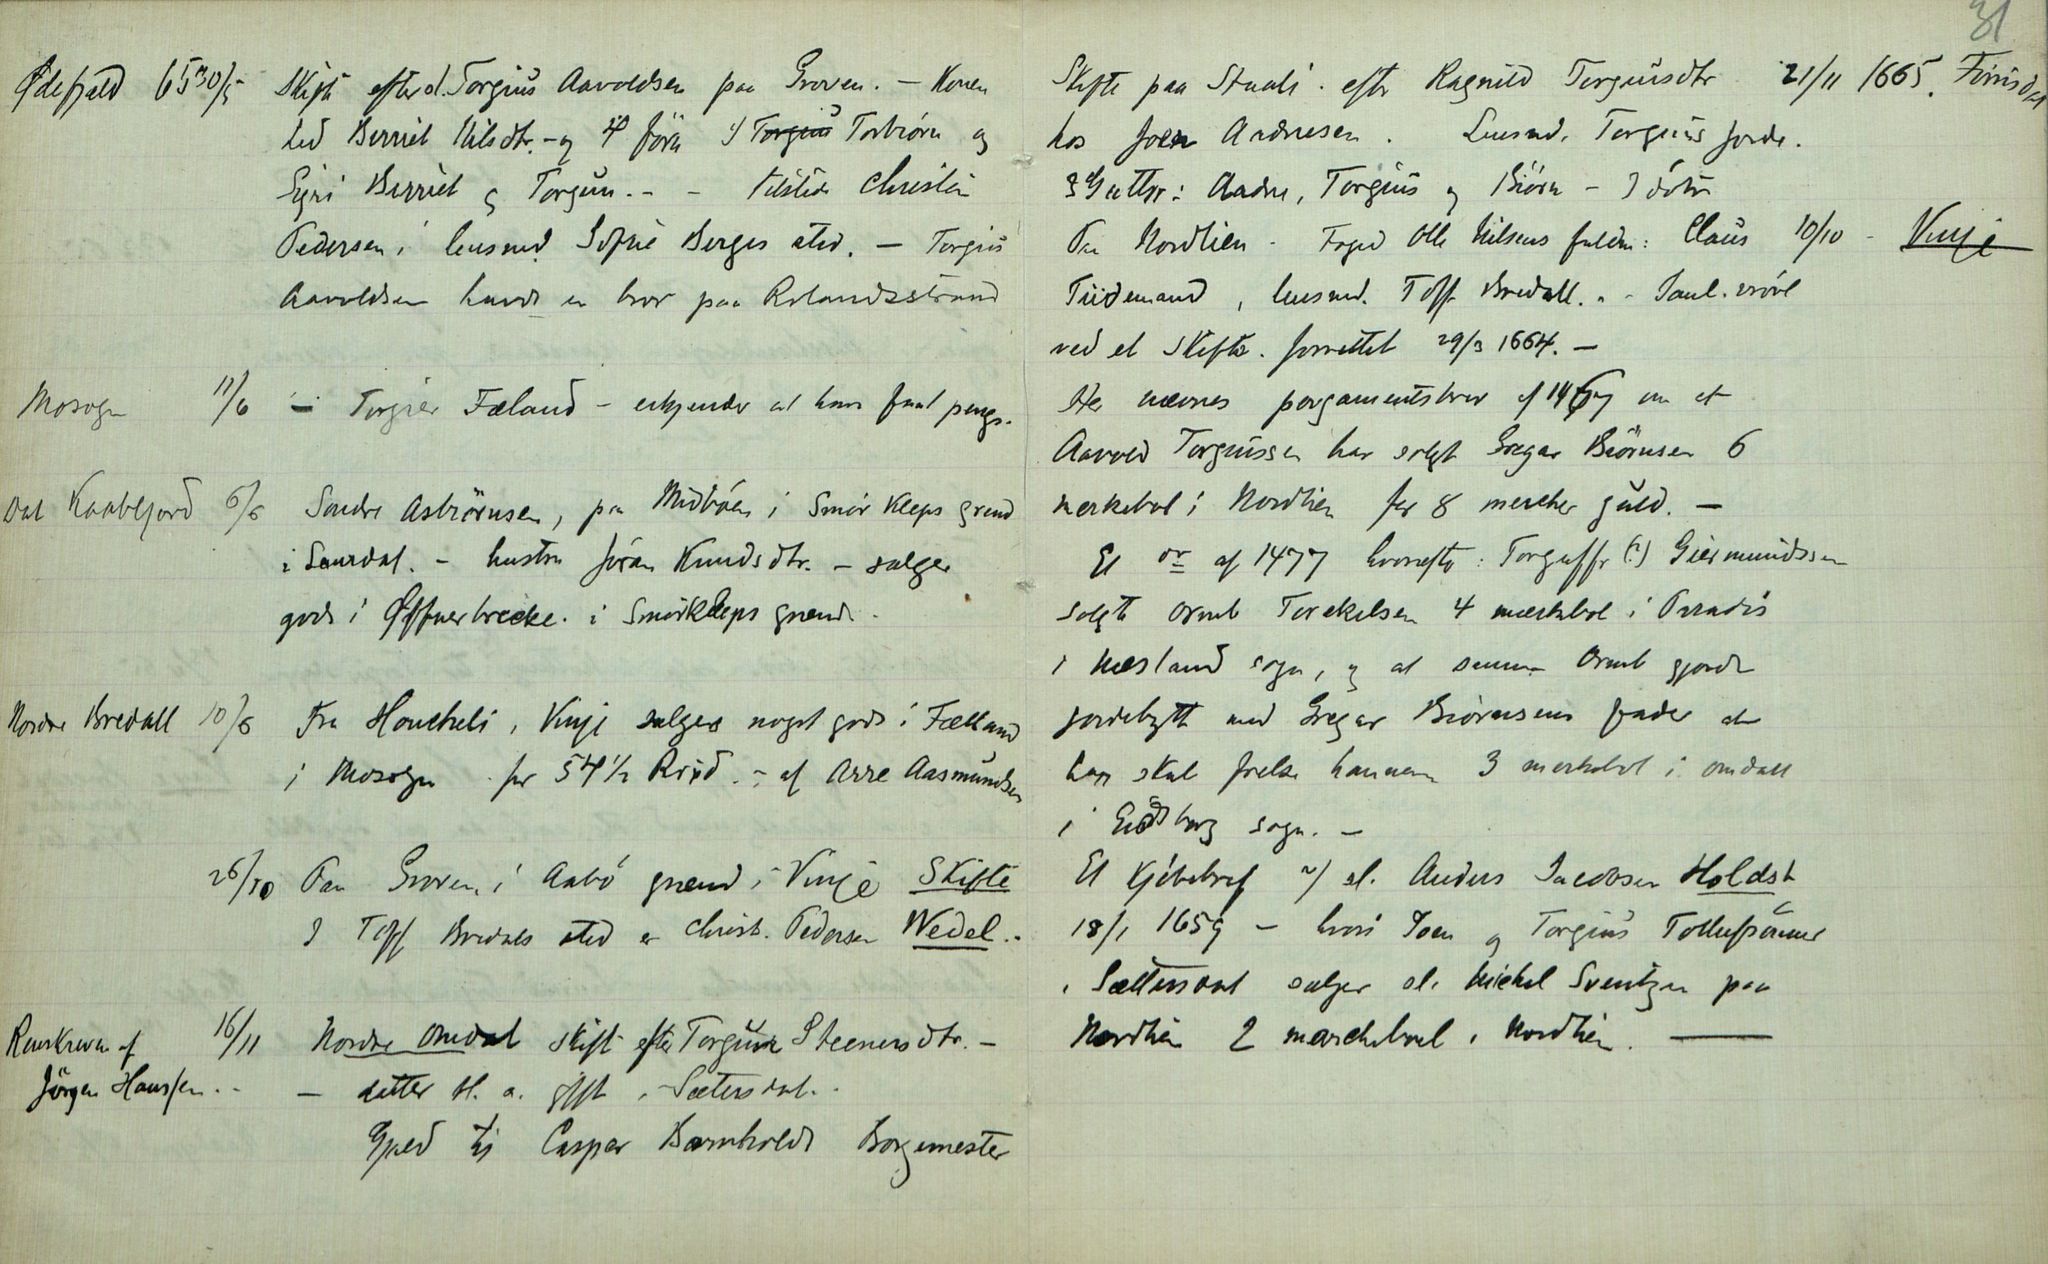 31
Ødefjeld 65 30/5 Skifte efter sl. Torgius Aavoldsen paa Groven. — Konen
hed Berriet Nilsdtr. - og 4 Torgius Torbiørn og
Egri Berriet og Torgun. - - tilstede Christen
Pedersen i lensmd. Sofrie Berges sted. — Torgius
Aavoldsen havde en bror paa Rolandsstrand
Mosogn 11/6 — Torgier Fæland - erkjender at have faat penge.
Dal Kaablfjord 6/6 Sondre Asbiørnsen, paa Midbøen i Smør Kleps grend
i Saurdal. - hustru Jøran Knudsdtr. - sælger
gods i Øffuerbrecke. i Smørkleps grend.
Nordre Bredall 10/6 Fra Houckeli, Vinje sælges noget gods i Fælland
i Mosogn for 54 1/2 Rixd. - af Arre Aasmundsen
26/10 Paa Groven i Aabø grend i Vinje Skifte
I Toff Bredals sted er Christ. Pedersen Wedel. -
Renskreven af 16/11 Nordre Omdal skifte efter Torgun Steenersdtr. -
Jörgen Hanssen. - — datter bl. a. gift i Sætersdal.
Gjæld til Casper Barnholdt Borgemester
Skifte paa Staali efter Ragnild Torgiusdtr 21/11 1665. Förrisdal
hos Joen Andresen. Lensmd. Torgius Jorde.
3 Sættsr: Aadne, Torgius og Biørn - I døtre
Paa Nordlien - Foged Olle Nilsens fuldm: Claus 10/10 - Vinje
Tiidemand, lensmd. Toff Bredall. -
ved et skifte forrettet 29/3 1664. —
Her nævnes pergamentsbrev af 1467 om at
Aavold Torgiussen har solgt Gregar Biørnsen 6
merkebol i Nordlien for 8 mercker guld. —
Et do af 1477 hvorefter: Torguffr (?) Giermundssen
solgte Ormb Torckelsen 4 merkebol i Paradis
i Næsland sogn, og at samme Ormb gjorde
jordebytte med Gregar Biørnsens fader at
han skal frelse hannem 3 merkebol i Omdall
i Eidsborg sogn. —
Et Kjøbebref sl. Anders Jacobsen Holdst
18/1 1659 — hvori Joen og Torgius Tollufsønner
i Sættersdal sælger sl. Michel Sventzen paa
Nordlien 2 marckebol i Nordlien. —